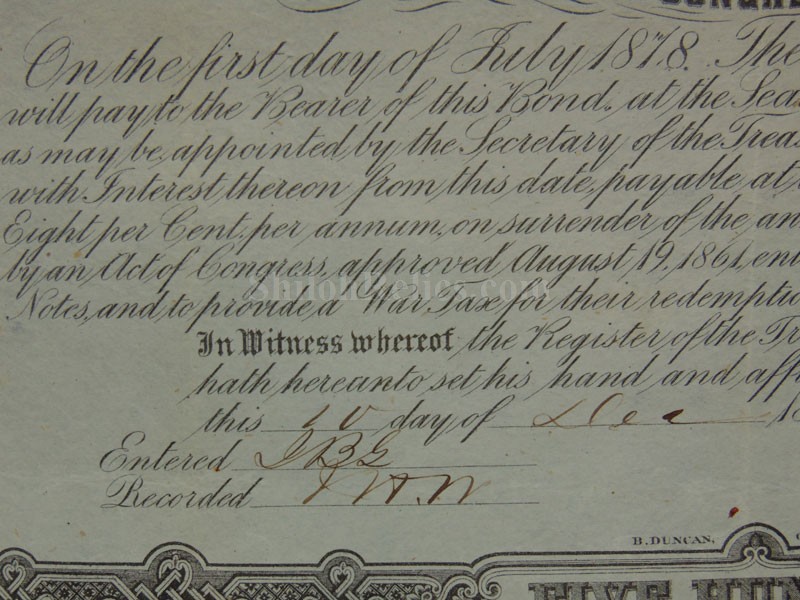 On the first day of July 1878. The
will pay to the Bearer of this Bond, at the Sea
as may be appointed by the Secretary of the Treas
with Interest thereon from this date, payable at
Eight per Cent. per annum, on surrender of the an
by an Act of Congress, approved August 19, 1861, ent
Notes, and to provide a War Tax for their redemptio
In Witness whereof the Register of the Tr
hath hereunto set his hand and aff
this 10 day of Dec 18
Entered JBG
Recorded
B. DUNCAN,
FIVE HUN